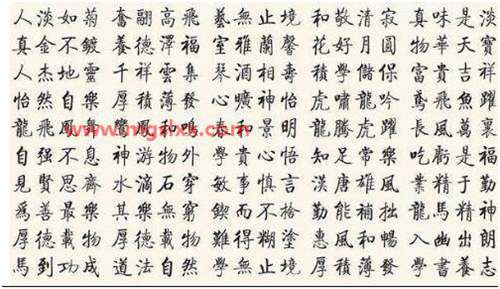 人淡如菊 奮翮高飛 藝無止境 和敬清寂 真味是淡
真金不鍍 養德澤福 室雅蘭馨 花好月圓 物華天寶
人杰地靈 千祥雲集 琴酒相壽 積學儲保 富貴吉祥
怡然自樂 厚積薄發 心曠神怡 虎嘯龍吟 鳶飛魚躍
龍飛鳳舞 鸞鳳和鳴 春和景明 龍騰虎躍 長風萬裏
自强不息 神游物外 和貴心悟 知足常樂 吃虧是福
見賢思齊 水滴石穿 敏事慎言 漢唐雄風 業精于勤
爲善最樂 其樂無窮 鍥而不捨 勤能補拙 龍馬精神
厚德載物 厚德載物 難得糊塗 惠風和暢 入幽出朗
馬到功成 道法自然 學無止境 厚積薄發 學書養志